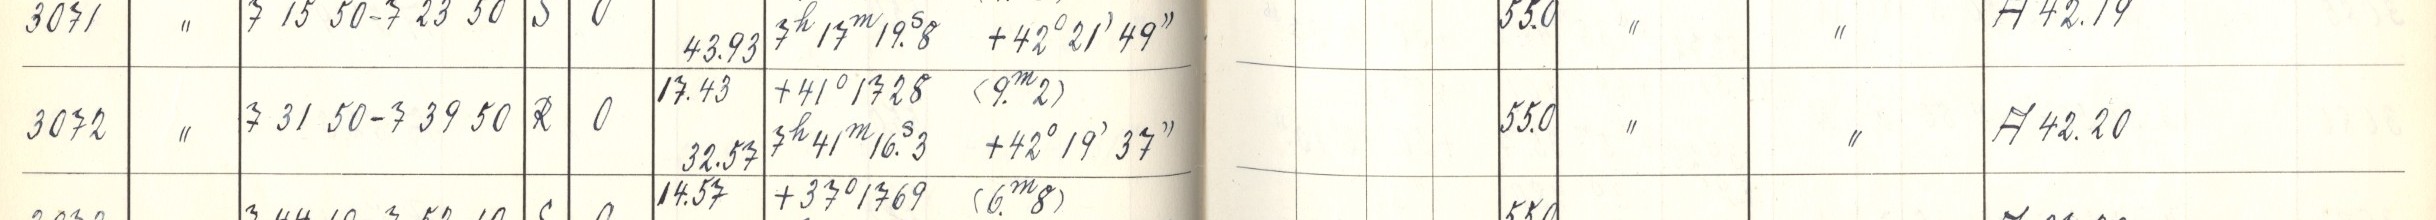 3071 " 7 15 50-7 23 50 S 0 43.93 7h 17m 19.s8 +42° 21' 49" 55.0 " " A 42.19
17.43 +41° 1728 (9.m2)
3072 " 7 31 50-7 39 50 R 0 55.0 " " A 42.20
32.57 7h 41m 16.s3 +42° 19' 37"
14.57 +37° 1769 (6.m8)
55.0